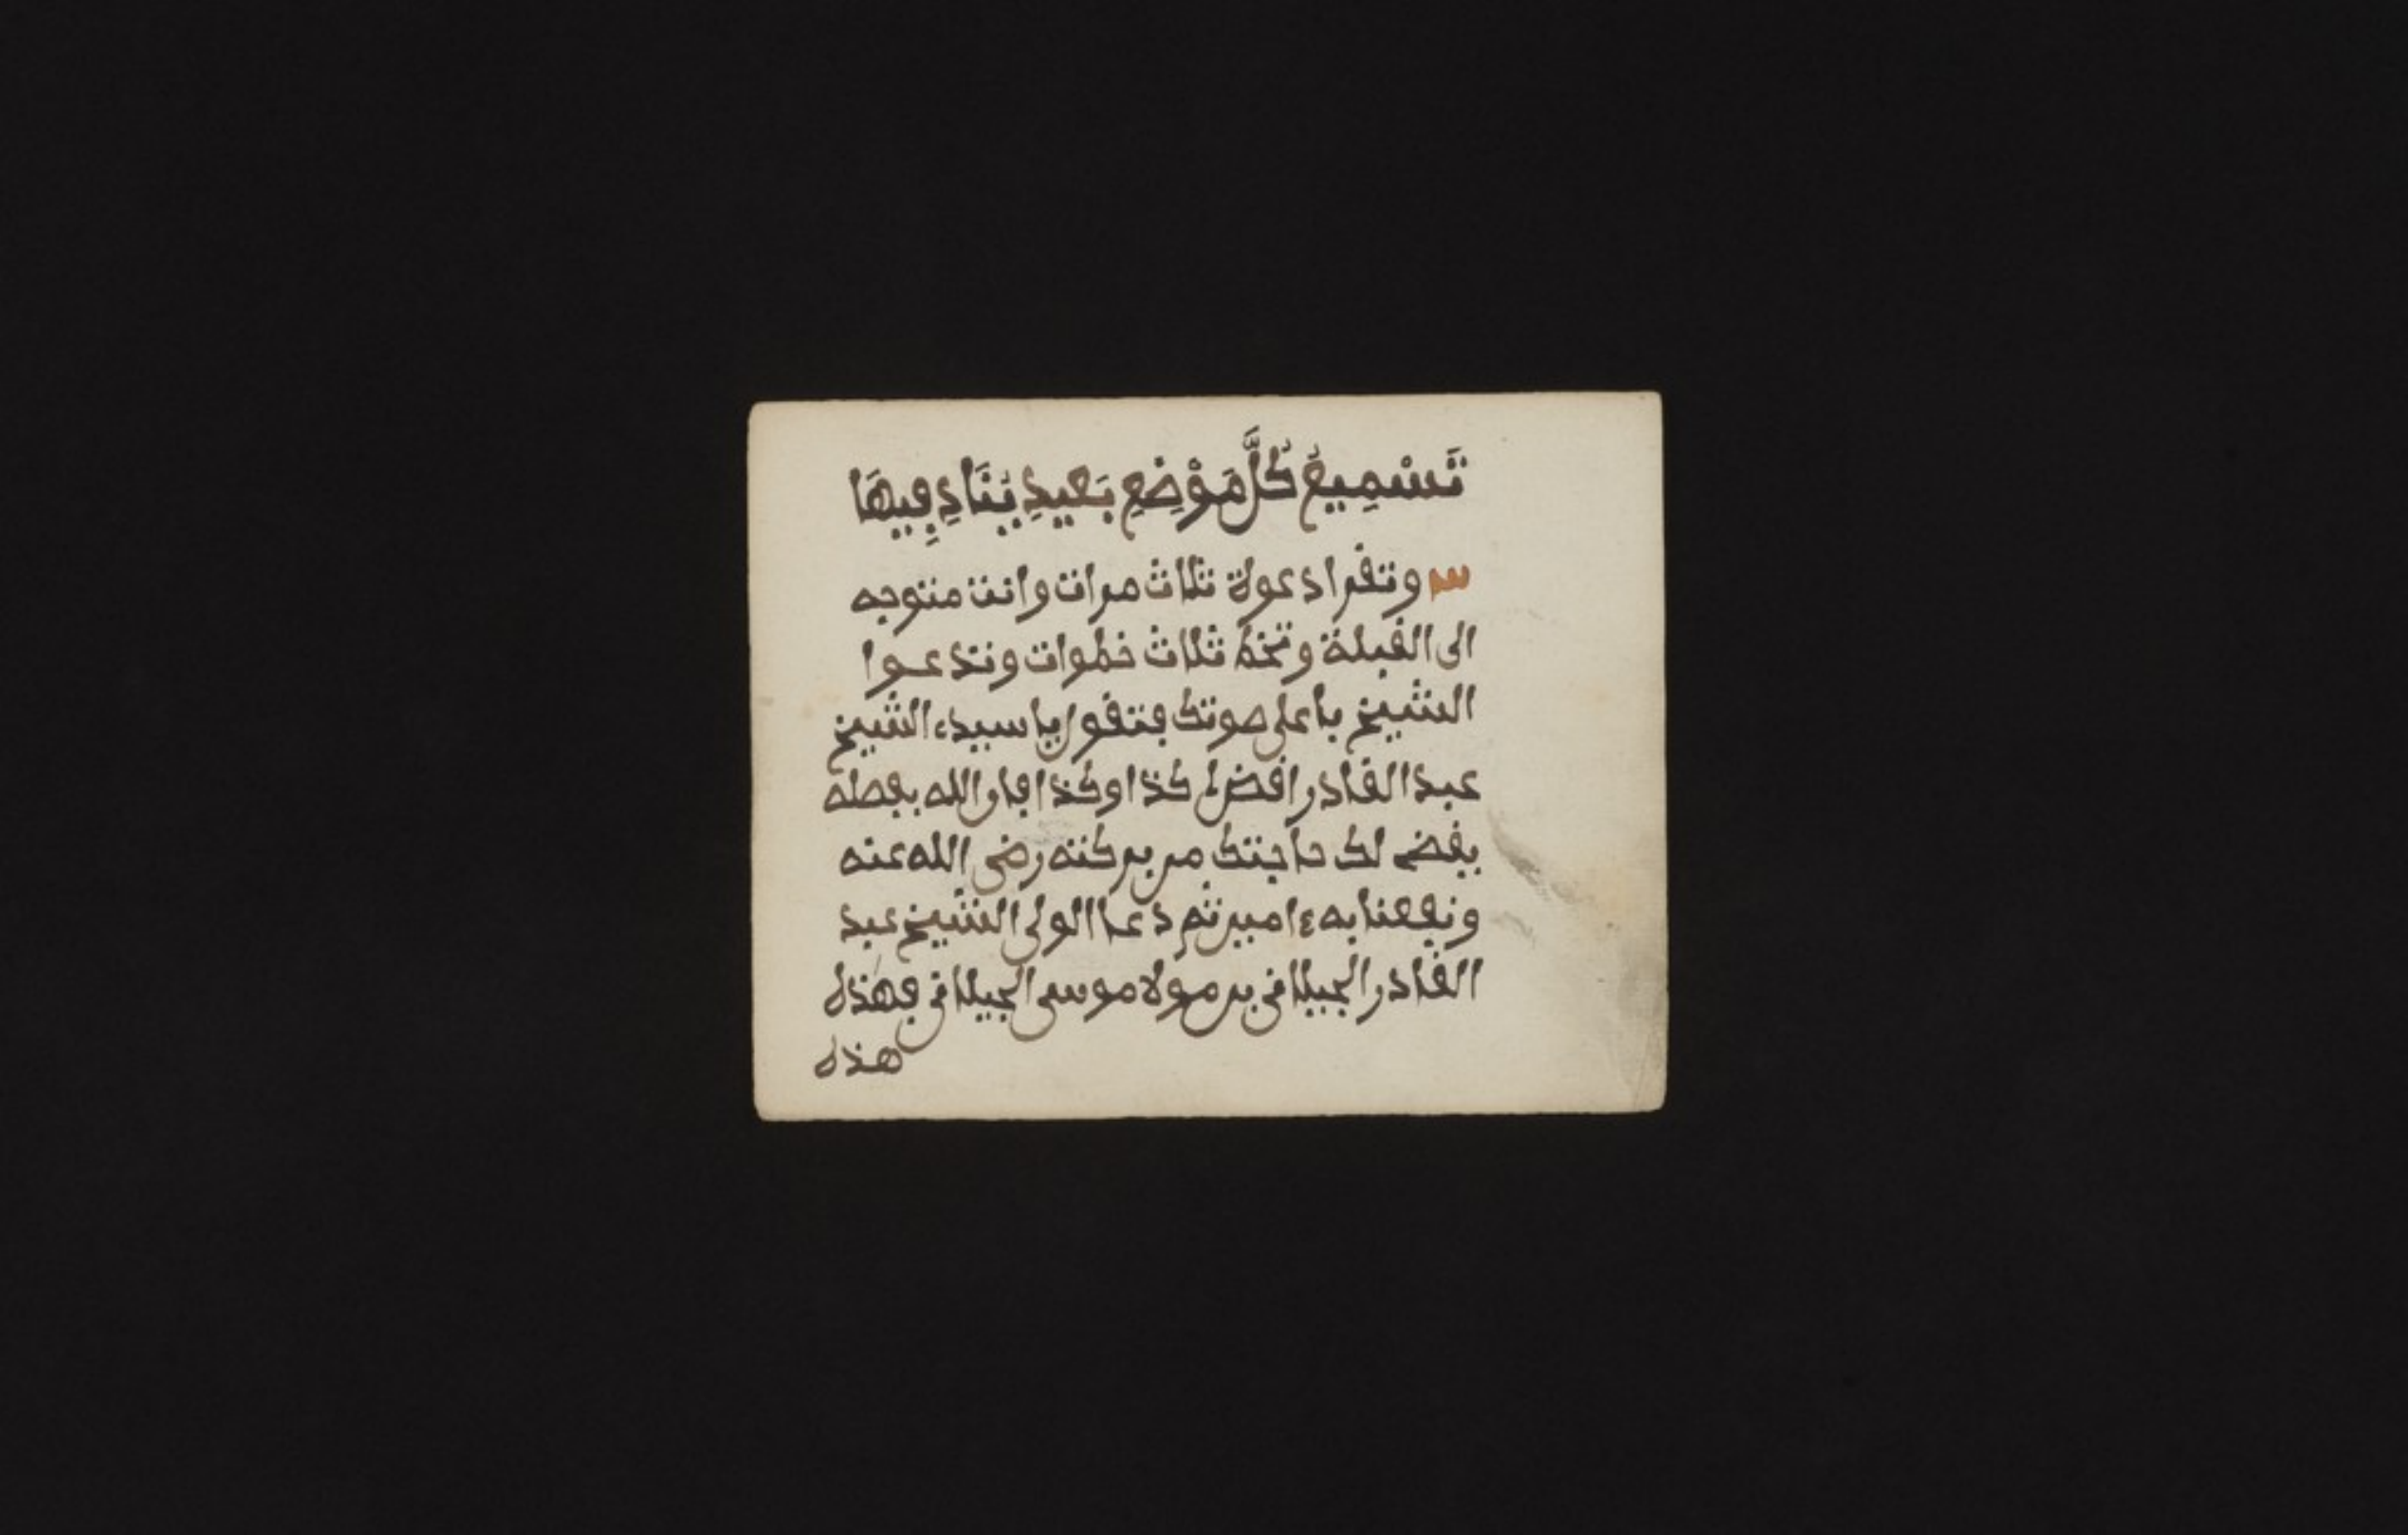 تَسْمِيعُ كُلَّ مَوْضِعِ بَعِيدِ يُنَادِ فِيهَا
وتقرا دعوة ثلاث مرات وانت متوجه
الى القبلة وتخط ثلاث خطوات وتدعوا
الشيخ باعلى صوتك فتقول يا سيدي الشيخ
عبد القادر اقض لي كذا وكذا فان الله بفضله
يقضي لك حاجتك من بركته رضى الله عنه
ونفعنا به ءامين ثم دعا الولي الشيخ عبد
القادر الجيلاني بن مولاه موسى الجيلاني فهذه
هذه